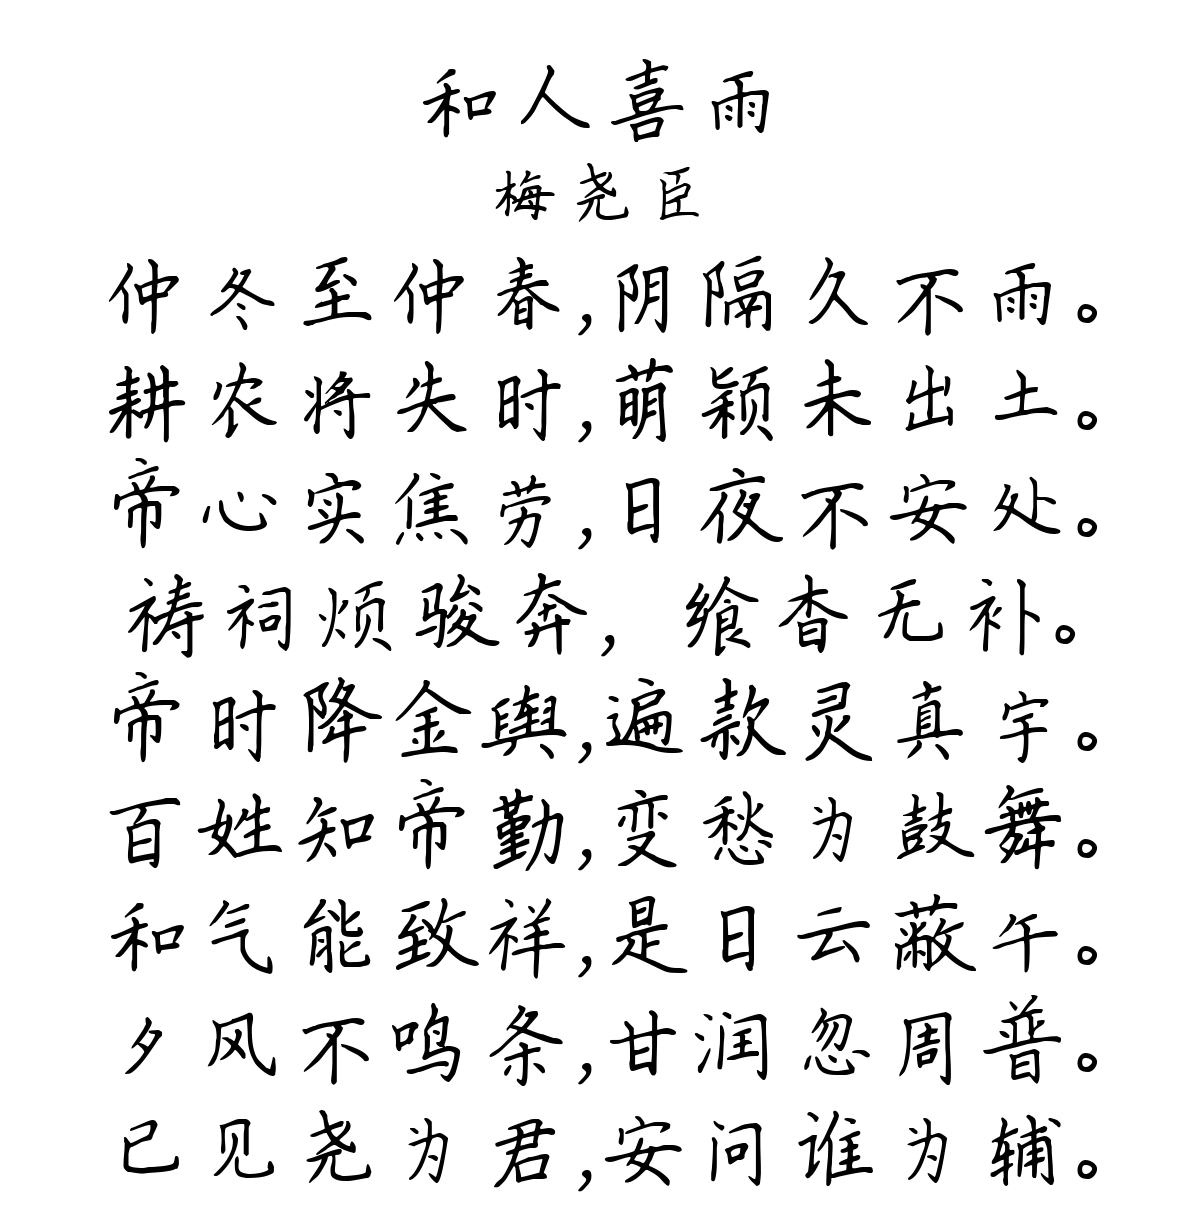 和人喜雨
梅尧臣
仲冬至仲春,阴隔久不雨。
耕农将失时,萌颖未出土。
帝心实焦劳,日夜不安处。
祷祠烦骏奔，飨杳无补。
帝时降金舆,遍款灵真宇。
百姓知帝勤,变愁为鼓舞。
和气能致祥,是日云蔽午。
夕风不鸣条,甘润忽周普。
已见尧为君,安问谁为辅。